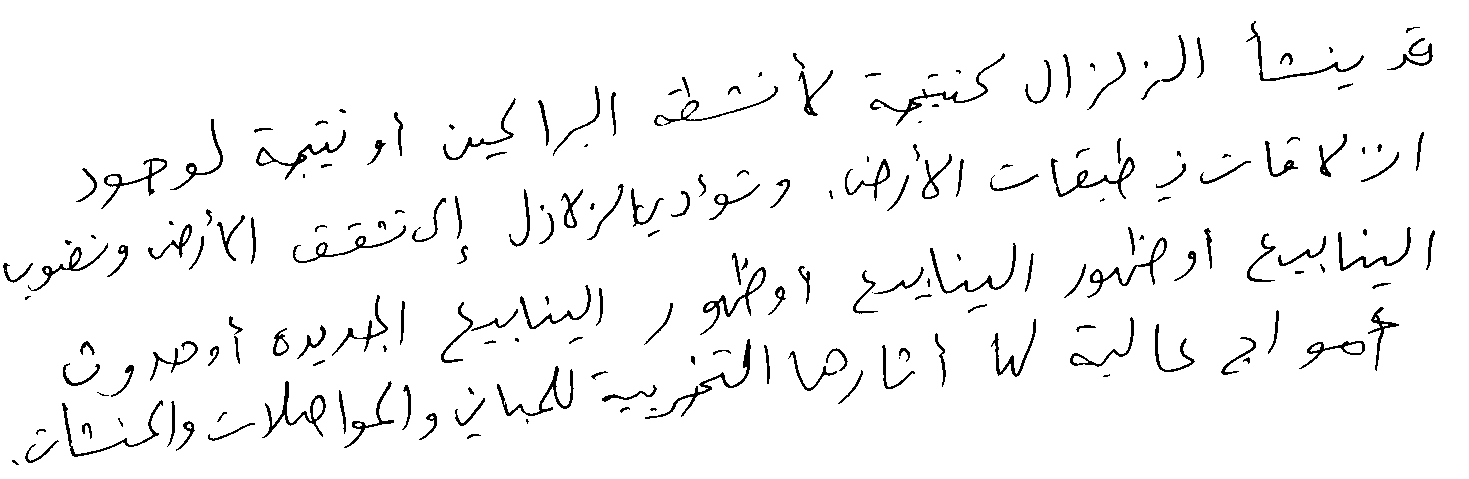 قد ينشأ الزلزال كنتيجة لأنشطه البراكين أو نتيجة لوجود
انزلاقات في طبقات الأرض. وتؤدي الزلازل إلى تشقق الأرض ونضوب
الينابيع أو ظهور الينابيع أو ظهور الينابيع الجديده أو حدوث
أمواج عالية لها أثارها التخريبية للمباني والمواصلات والمنشات.